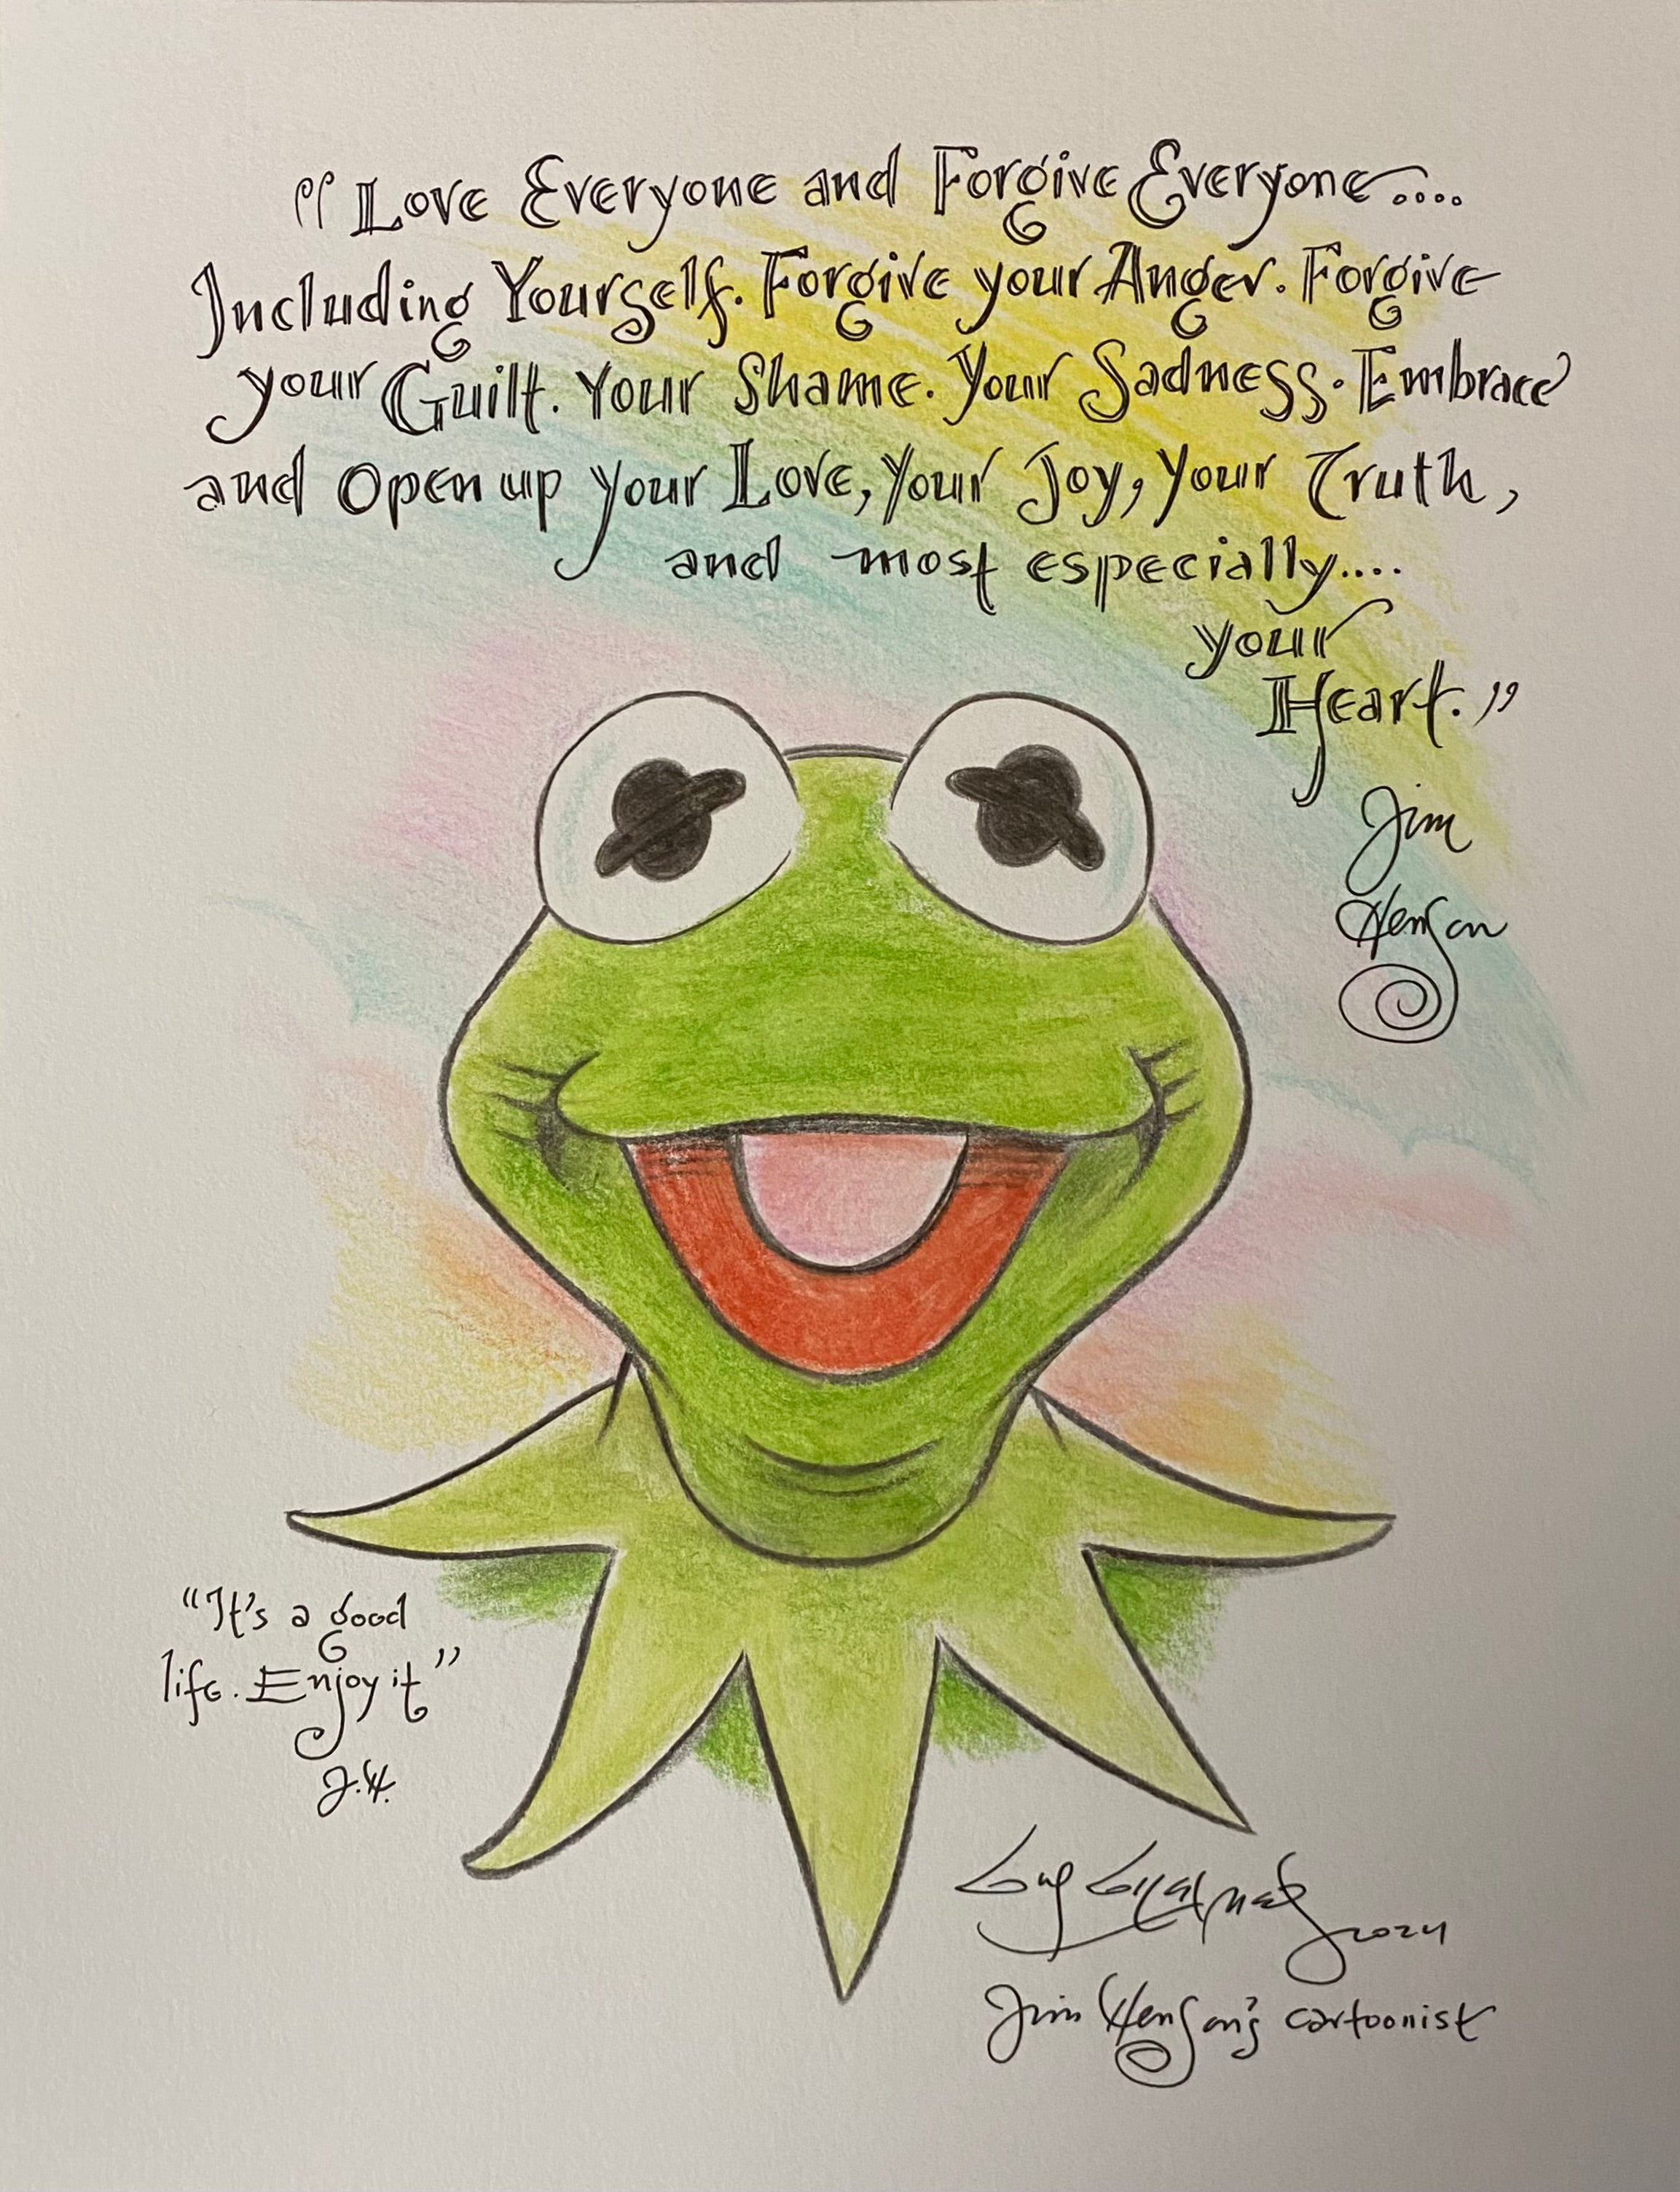 "Love Everyone and Forgive Everyone....
Including Yourself. Forgive your Anger. Forgive
your Guilt. Your Shame. Your Sadness. Embrace
and Open up your Love, your Joy, your Truth,
and most especially....
your
Heart."
Jim
Henson
"It's a good
life. Enjoy it"
J.H.
Guy Gilchrist
2024
Jim Henson's cartoonist